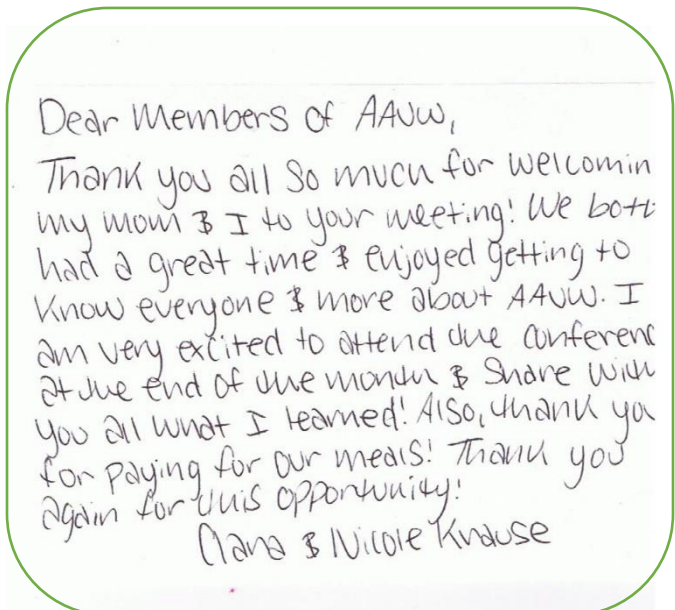 Dear Members of AAUW,
Thank you all so much for welcomin
my mom & I to your meeting! We both
had a great time & enjoyed getting to
know everyone & more about AAUW. I
am very excited to attend the conferenc
at the end of the month & share with
you all what I learned! Also, thank you
for paying for our meals! Thank you
again for this opportunity!
& Nicole Knause